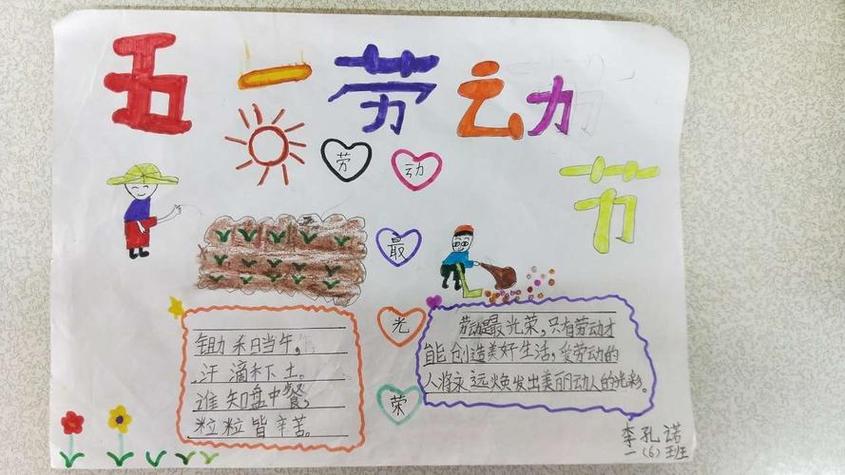 五一劳动
节
劳动
最
光
荣
锄禾日当午,
汗滴禾下土。
谁知盘中餐,
粒粒皆辛苦。
劳动最光荣,只有劳动才
能创造美好生活,爱劳动的
人将永远焕发出美丽动人的光彩。
李孔诺
一(6)班